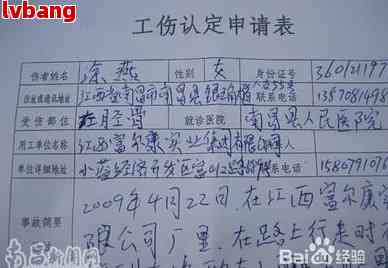 lvbang
工伤认定申请表
伤者姓名 涂燕 性别 女 身份证号 360121197
住址或通讯地址 江西省南昌市南昌县 联系电话 1357081498
受伤部位 左胫骨 就诊医院 南昌县人民医院
用工单位名称 江西富尔康实业集团有限
单位详细地址 小蓝经济开发区富 联系电话 1580791016
2009年4月22日,在江西富尔康实
事故简要 限公司厂里,在路上行走时
南昌新闻网
Baidu百度经验